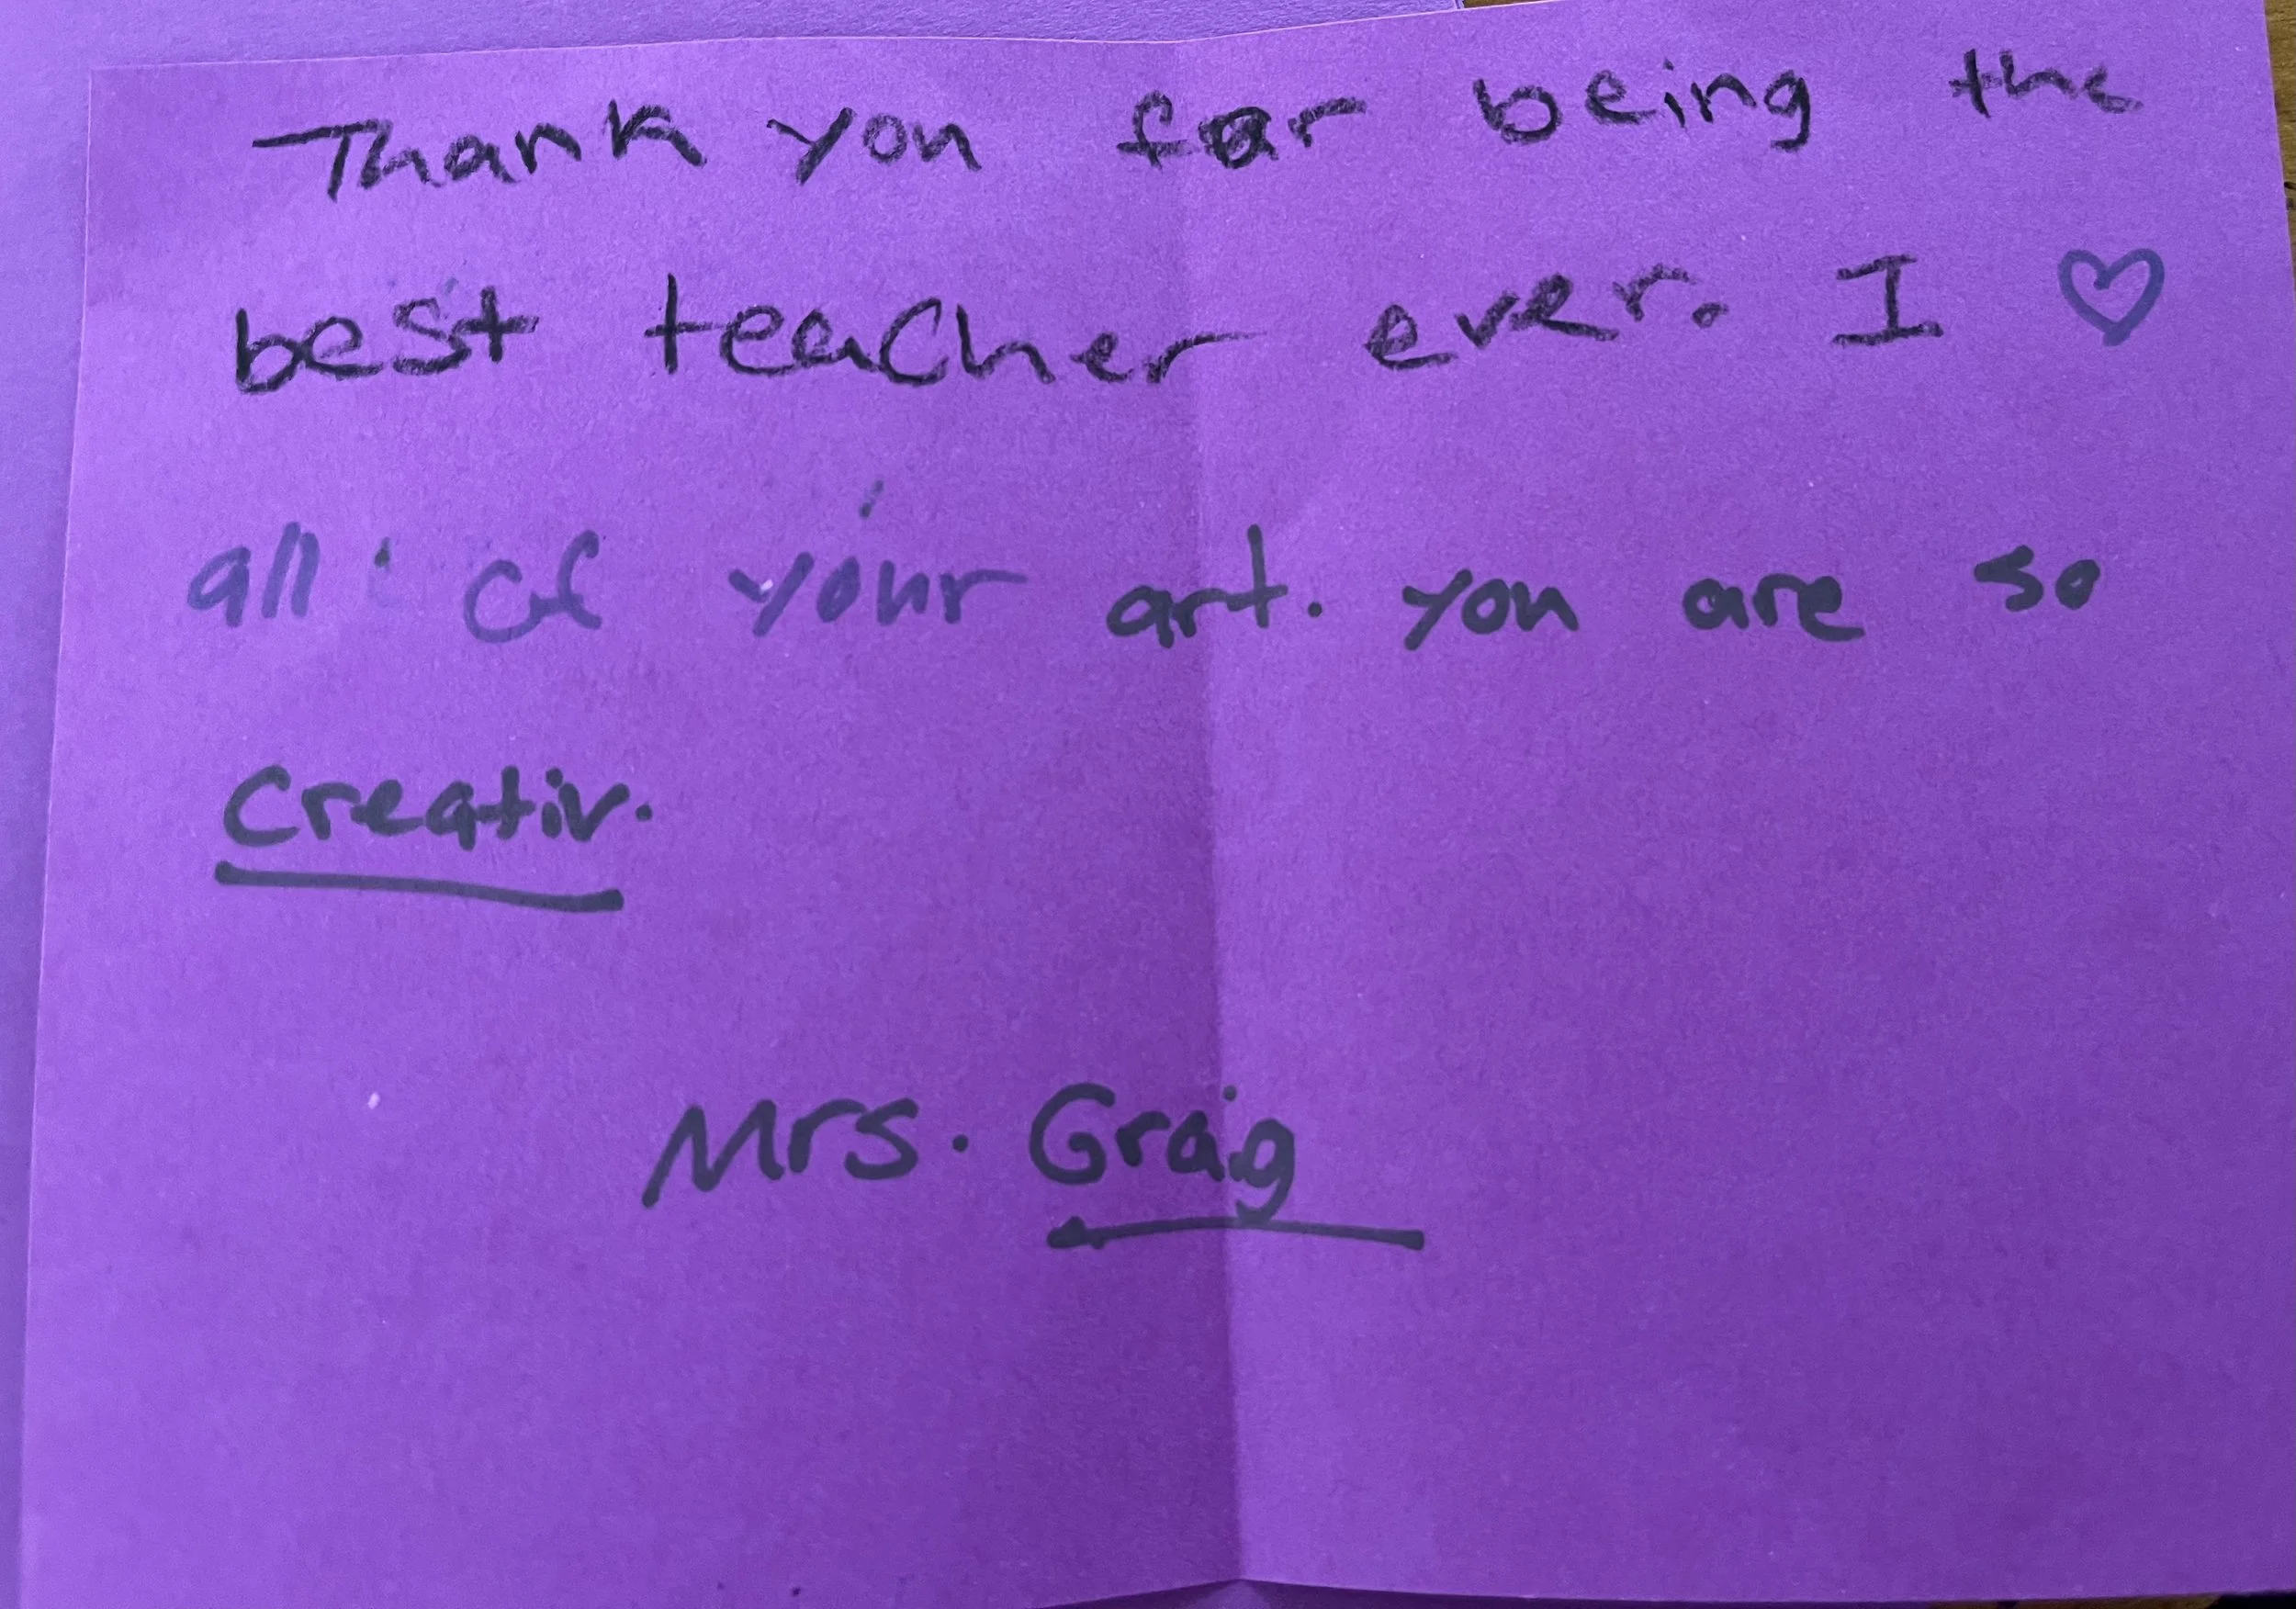 Thank you for being the
best teacher ever. I ♡
all of your art. you are so
creativ.
Mrs. Graig